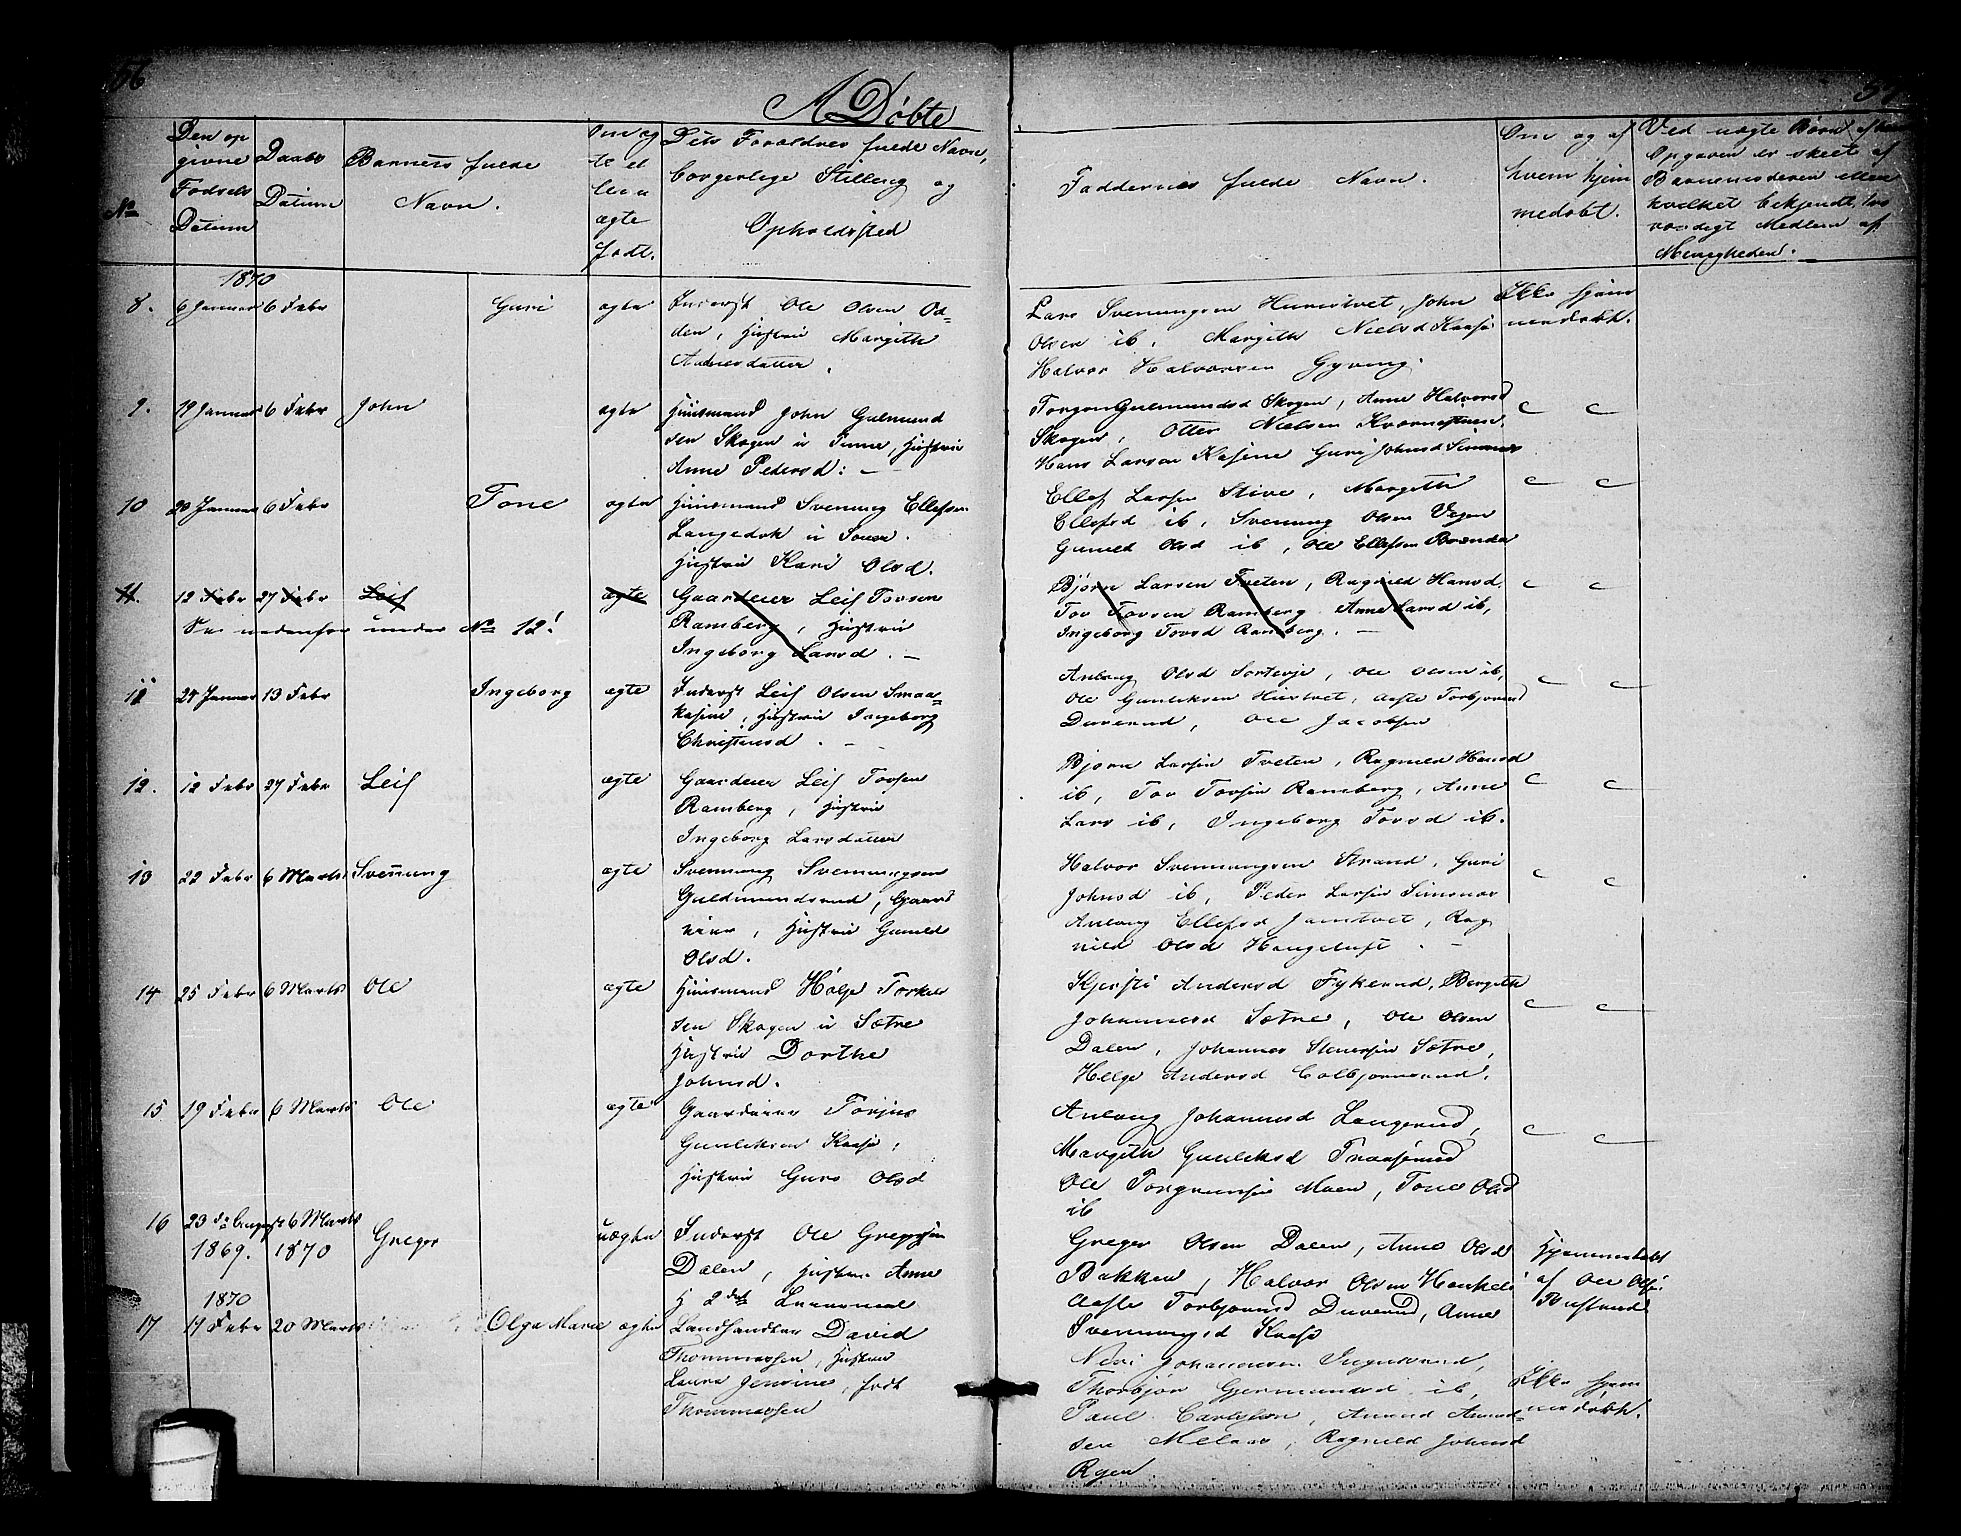 56
A Døbte
57
No
Den op
givne
Fødsels
Datum
Daabs
Datum
Barnets fulde
Navn.
Om æg
te el
ler u
ægte
født.
Dets Forældres fulde Navn,
borgerlige Stilling og
Opholdssted
Faddernes fulde Navn.
Om og af
hvem hjem
medøbt.
Ved uægte Børn
Opgaven er skeet af
Barnemoderen eller
hvilket bekjendt, tro
værdigt Medlem af
Menigheden.
1870
8. 6 Januar 6 Febr Guri ægte Inderst Ole Olsen Od=
den, Hustru Margith
Andersdatter.
Lars Svenungsen Hunstvet, John
Olsen ib, Margith Nielsd Kaasa
Halvor Halvorsen Gyving.
Ikke hjem
medøbt.
9. 19 Januar 6 Febr John ægte Huusmand John Gulmund
sen Skogen u Tinne, Hustru
Anne Pedersd: —
Torgon Gulmundsd Skogen, Anne Halvorsd
Skogen, Otter Nielsen
Hans Larsen Kasine Guri Johnsd
10 20 Januar 6 Febr Tone ægte Huusmand Svenung Ellefsen
Langedok u Sønn.
Hustru Kari Olsd.
Ellef Larsen Stive, Margith
Ellefsd ib, Svenung Olsen Vegen
Gunild Olsd ib, Ole Ellefsen
11. 12 Febr 27 Febr Leif ægte Gaardeier Leif Tovsen
Ramberg, Hustru
Ingeborg Larsd. —
Se nedenfor under No 12!
Bjørn Larsen Tveten, Ragnild Hansd
Tov Tovsen Ramberg. Anne Larsd ib,
Ingeborg Tovsd Ramberg. —
11 24 Januar 13 Febr Ingeborg ægte Inderst Leif Olsen Smaa=
kasine, Hustru Ingeborg
Christensd. —
Anlaug Olsd Sorteroi, Ole Olsen ib,
Ole Gunleksen Hustvet, Aaste Torbjørnsd
Duverud, Ole Jacobsen
12. 12 Febr 27 Febr Leif ægte Gaardeier Leif Tovsen
Ramberg, Hustru
Ingeborg Larsdatter
Bjørn Larsen Tveten, Ragnild Hansd
ib, Tov Tovsen Ramberg, Anne
Lars ib, Ingeborg Tovsd ib.
13 22 Febr 6 Marts Svenung ægte Svennung Svennungsen
Guldmundsrud, Gaard
eier, Hustru Gunild
Olsd.
Halvor Svennungsen Strand, Guri
Johnsd ib, Peder Larsen Simones
Anlaug Ellefsd Jamtvet, Rag
nild Olsd Hangeluft. —
14 25 Febr 6 Marts Ole ægte Huusmand Hølje Torkils
sen Skogen u Sætre
Hustru Dorthe
Johnsd.
Kjersti Andersd Fykerud, Bergith
Johannesd Sætre, Ole Olsen
Dalen, Johannes Stenersen Sætre,
Helge Andersd Colbjørnsrud.
15 19 Febr 6 Marts Ole ægte Gaardeier Torjus
Gunleksen Kaasa,
Hustru Guro Olsd
Anlaug Johannesd Langerud,
Margith Gunleksd Traaserud
Ole Torgrimsen Moen, Tone Olsd
ib
16 23 August 6 Marts
1869. 1870 Gregor uægte Inderst Ole Gregersen
Dalen, Hustru Anne
Greger Olsen Dalen, Anne Olsd
Bakken, Halvor Olsen
Aaste Torbjørnsd Duverud, Anne
Svennungsd Kaasa
Hjemmedøbt
af Ole Olsen
Bustrud
1870
17 17 Febr 20 Marts Olga Marie ægte Landhandler David
Thommassen, Hustru
Laura Jensine, født
Thommassen
Johannesen Ingulsrud,
Thorbjør Gjermundsd ib,
Paul Carlsson, Amund Amund=
sen Melaas, Ragnild Johnsd
Rgen.
Ikke hjem
medøbt.